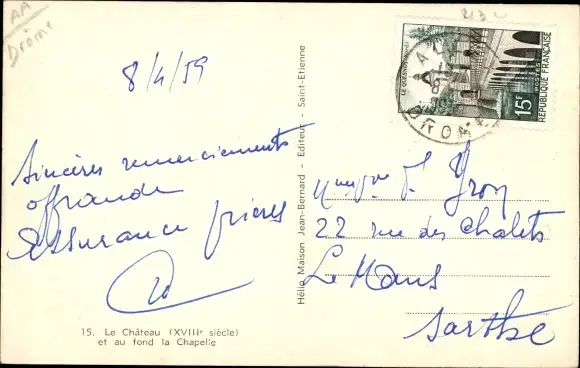 AA
Drôme
8/4/59
Sincères remerciements
offrande
Assurance prières
15. Le Château (XVIIIe siècle)
et au fond la Chapelle
Hélio Maison Jean-Bernard - Editeur - Saint-Etienne
LE QUESNOY
15F
POSTES
REPUBLIQUE FRANÇAISE
DROME
J. Yron
22 rue des Chalets
Le Mans
Sarthe